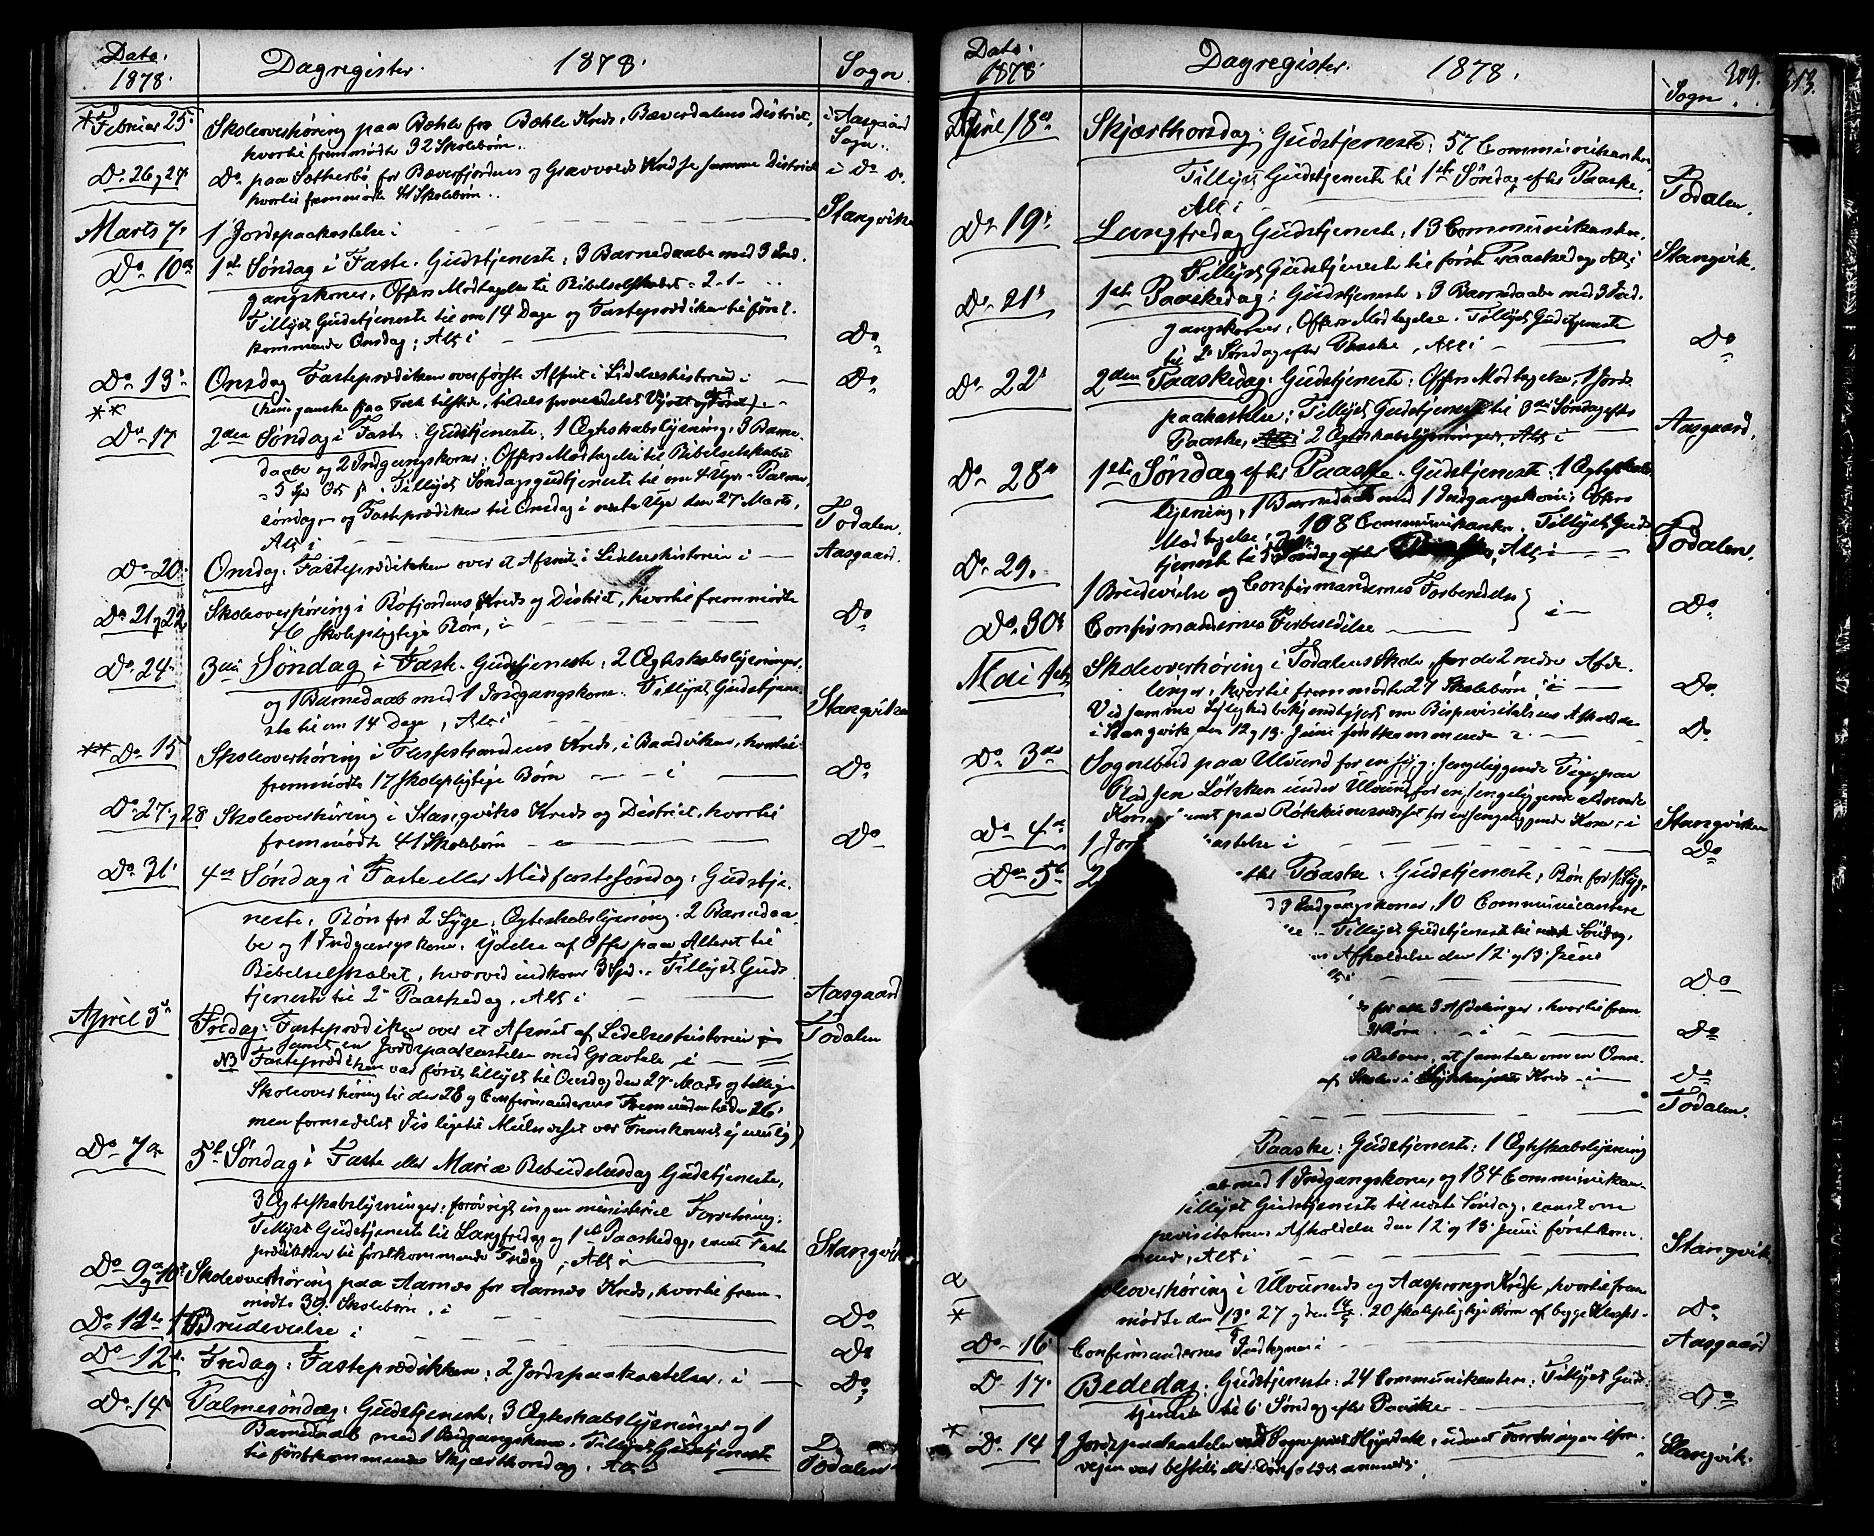 Dato. 1878. Dagregister. 1878. Sogn.
*Februar 25 Skoleoverhøring paa Bøhle for Bøhle Kreds, Bæverdalens District, i Aasgaard
hvortil fremmødte 32 Skolebørn. Sogn.
Do 26 og 27 Do paa Sætherbø for Bæverfjordens og Gravvolds Kredse samme District i Do Do.
hvortil fremmødte 41 Skolebørn.
Marts 7. 1 Jordspaakastelse i Stangvik
Do 10de 1ste Søndag i Faste. Gudstjeneste, 3 Barnedaabe med 3 Ind-
gangskoner, Offers Modtagelse til Bibelselskabet
Tillyst Gudstjeneste til om 14 Dage og Fasteprædiken til først-
kommende Onsdag, Alt i Do
Do 13. Onsdag Fasteprædiken over første Afsnit i Lidelseshistorien i Do
** Do 17 2den Søndag i Faste. Gudstjeneste, 1 Ægteskabslysning, 3 Barne-
daabe og 2 Indgangskoner, Offers Modtagelse til Bibelselskabet
Tillyst Søndagsgudstjeneste til om 4 Uger Palme-
søndag, og Fasteprædiken til Onsdag i næste Uge den 27 Marts,
Alt i Todalen.
Do 20. Onsdag. Fasteprædiken over et Afsnit i Lidelseshistorien i Aasgaard.
Do 21 og 22 Skoleoverhøring i Bøfjordens Kreds og District, hvortil fremmødte
46 skolepligtige Børn, i Do
Do 24. 3die Søndag i Faste. Gudstjeneste, 2 Ægteskabslysninger,
og 1 Barnedaab med 1 Indgangskone. Tillyst Gudstjene-
ste til om 14 Dage, Alt i Stangviken
** Do 15 Skoleoverhøring i Kreds, i Baadviken, hvortil
fremmødte 17 skolepligtige Børn i Do
Do 27 og 28 Skoleoverhøring i Stangviks Kreds og District, hvortil
fremmødte 41 Skolebørn Do
Do 31. 4de Søndag i Faste eller Midfastesøndag: Gudstje-
neste, Bøn for 2 Syge, Ægteskabslysning. 2 Barnedaa-
be og 1 Indgangskone. Ydelse af Offer paa Alteret til
Bibelselskabet, hvorved indkom 3 Spd. Tillyst Guds-
tjeneste til 2 Paaskedag, Alt i Aasgaard
April 5te Fredag: Fasteprædiken over et Afsnit af Lidelseshistorien Todalen
samt en Jordspaakastelse med Gravtale, i
NB Fasteprædiken var først tillyst til Onsdag den 27 Marts og tillige
Skoleoverhøring til den 28 og Confirmandernes Fremmøde til den 26
men formedelst Fremkomst ej mulig)
Do 7de 5te Søndag i Faste eller Mariæ Bebudelsesdag Gudstjeneste,
3 Ægteskabslysninger; forøvrigt ingen ministeriel Forretning.
Tillyst Gudstjeneste til Langfredag og 1ste Paaskedag, samt Faste-
prædiken til førstkommende Fredag, Alt i Stangvik
Do 9de og 10de Skoleoverhøring paa Aarnæs for Aarnæs Kreds, hvortil frem-
mødte 39 Skolebørn, i Do
Do 12te 1 Brudevielse i Do
Do 12te Fredag: Fasteprædiken; 2 Jordspaakastelser, i Do
Do 14 Palmesøndag: Gudstjeneste, 3 Ægteskabslysninger og 1
Barnedaab med 1 Indgangskone. Tillyst Gudstjeneste
til førstkommende Skjærthorsdag, Alt i Todalen
Dato. 1878. Dagregister. 1878. 309. Sogn
313.
April 18de Skjærthorsdag; Gudstjeneste; 57 Communikanter,
Tillyst Gudstjeneste til 1ste Søndag efter Paaske.
Alt i Todalen.
Do 19. Langfredag Gudstjeneste, 13 Communikanter.
Tillyst Gudstjeneste til første Paaskedag, Alt i Stangvik.
Do 21. 1ste Paaskedag: Gudstjeneste, 3 Barnedaabe med 3 Ind-
gangskoner, Offers Modtagelse. Tillyst Gudstjeneste
til 2 Søndag efter Paaske, Alt i Do
Do 22. 2den Paaskedag: Gudstjeneste: Offers Modtagelse, 1 Jords-
paakastelse; Tillyst Gudstjeneste til 3die Søndag efter
Paaske, 2 Ægteskabslysninger, Alt i Aasgaard.
Do 28de 1ste Søndag efter Paaske. Gudstjeneste: 1 Ægteskabs-
lysning, 1 Barnedaab med 1 Indgangskone; Offers
Modtagelse, 108 Communikanter. Tillyst Guds-
tjeneste til 5 Søndag efter Alt i Todalen.
Do 29. 1 Brudevielse og Confirmandernes Forberedelse } i Do
Do 30. Confirmandernes Forberedelse
Mai 1ste Skoleoverhøring i Todalens Skole, for de 2 nedre Afde-
linger, hvortil fremmødte 27 Skolebørn, i Do
Ved samme Lejlighed bekjendtgjort om Bispevisitatsens Afholdelse
i Stangvik den 12 og 13. Juni førstkommende Do
Do 3die Sognebud paa Ulvund for en syg, sengeliggende Pige, paa
under Ulvund for en sengeliggende aldrende
Kone, samt paa for en sengeliggende Kone, i Stangviken
Do 4de 1 Jor astelse i Do
Do 5te 2 efter Paaske. Gudstjeneste, Bøn for 1 Syg,
d 3 Indgangskoner, 10 Communicantere
Tillyst Gudstjeneste til næste Søndag,
Afholdelse den 12 og 13. Juni
Do
for alle 3 Afdelinger, hvortil frem-
31 Børn i Do
at samtale om en
af Skolen i Kreds i Do
Todalen.
Paaske: Gudstjeneste: 1 Ægteskabslysning
ab med 1 Indgangskone, og 184 Communikan-
illyst Gudstjeneste til næste Søndag, samt om
pevisitatsens Afholdelse den 12 og 13. Juni førstkom-
mende, Alt i Stangvik
oleoverhøring i Ulvunds og Kreds, hvortil frem-
* mødte den 13. 27 og den 14. 20 skolepligtige Børn af begge Klasser Do
Do 16 Confirmandernes i Aasgaard
D 17. Bededag: Gudstjeneste: 24 Communikanter: Tillyst Guds-
tjeneste til 6 Søndag efter Paaske Do
* Do 14 1 Jordspaakastelse uden Forretning
vejen var Stangvik.